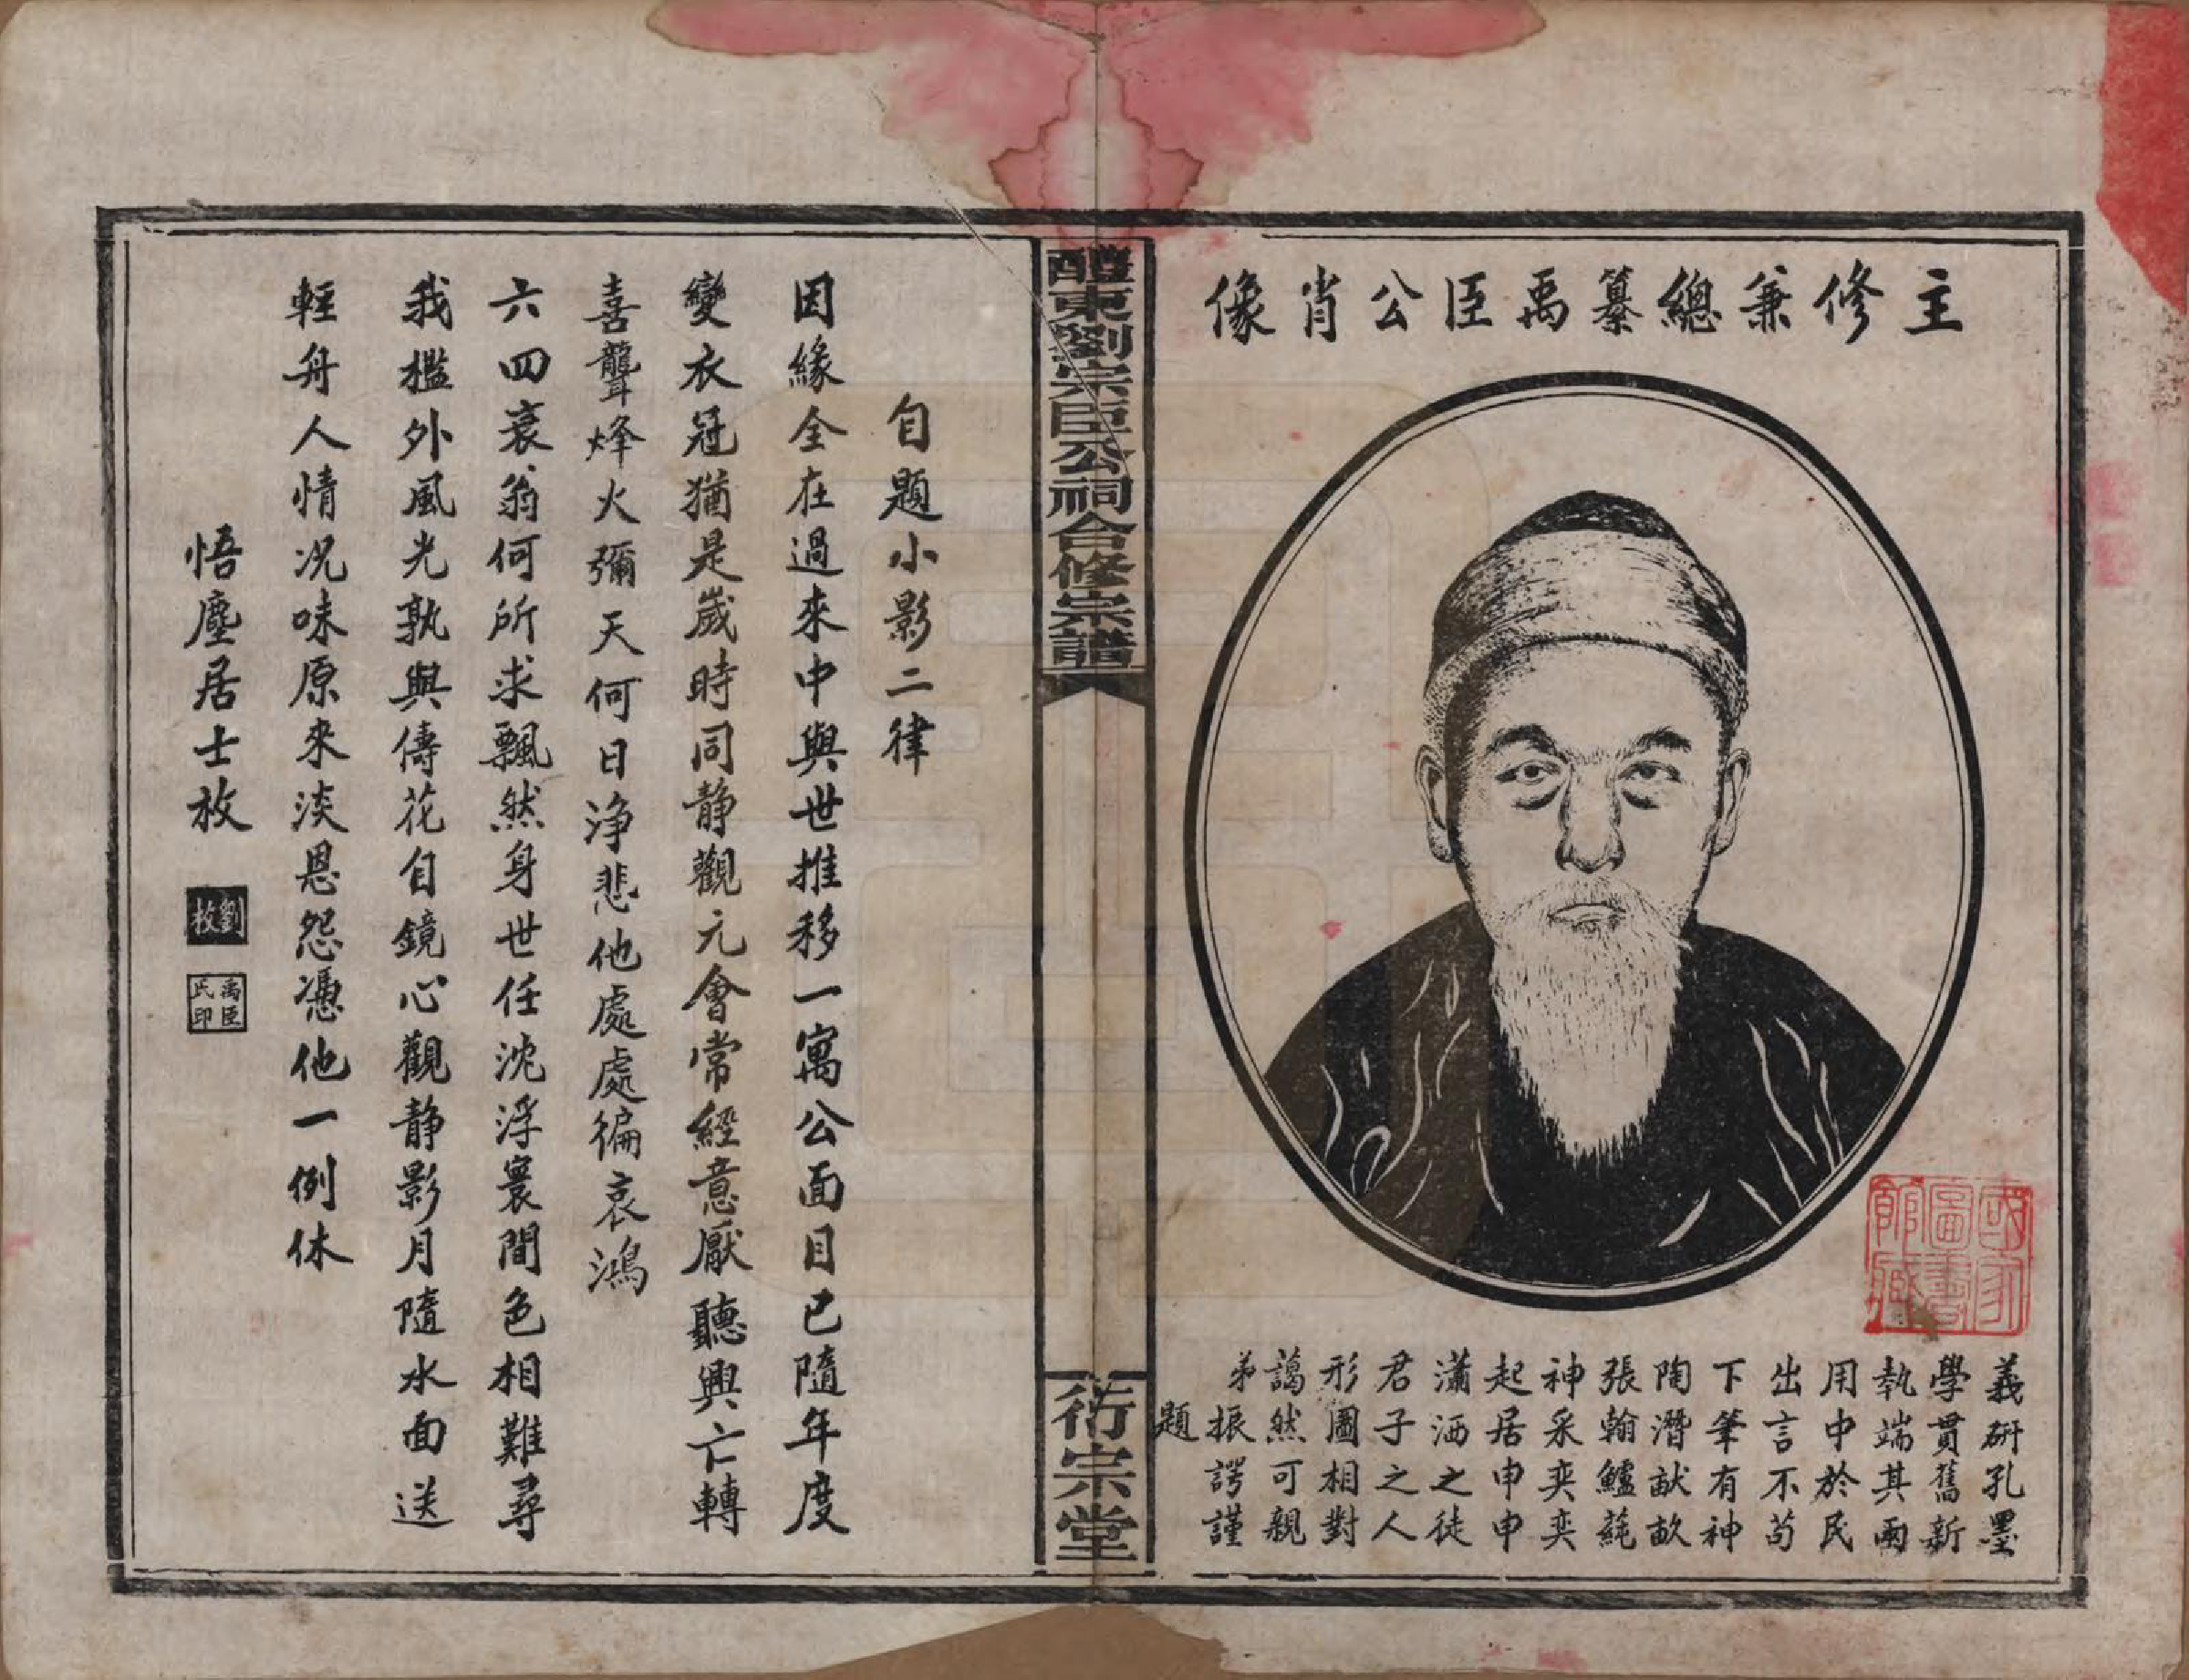 主修兼總纂禹臣公肖像
義硏孔墨
學貫舊新
執端其兩
用中於民
出言不苟
下筆有神
陶潛猷畝
張翰鱸蓴
神采奕奕
起居申申
瀟洒之徒
君子之人
形圖相對
藹然可親
弟振諤謹
題
國家圖書館藏
醴東劉宗臣公祠合修宗譜
衍宗堂
自題小影二律
因緣全在過來中與世推移一寓公面目已隨年度
變衣冠猶是歲時同静觀元會常經意厭聽興亡轉
喜聾烽火彌天何日浄悲他處處徧哀鴻
六四衰翁何所求飄然身世任沈浮寰間色相難尋
我檻外風光孰與儔花自鏡心觀静影月隨水面送
輕舟人情况味原來淡恩怨憑他一例休
悟塵居士枚
劉枚
禹臣氏印